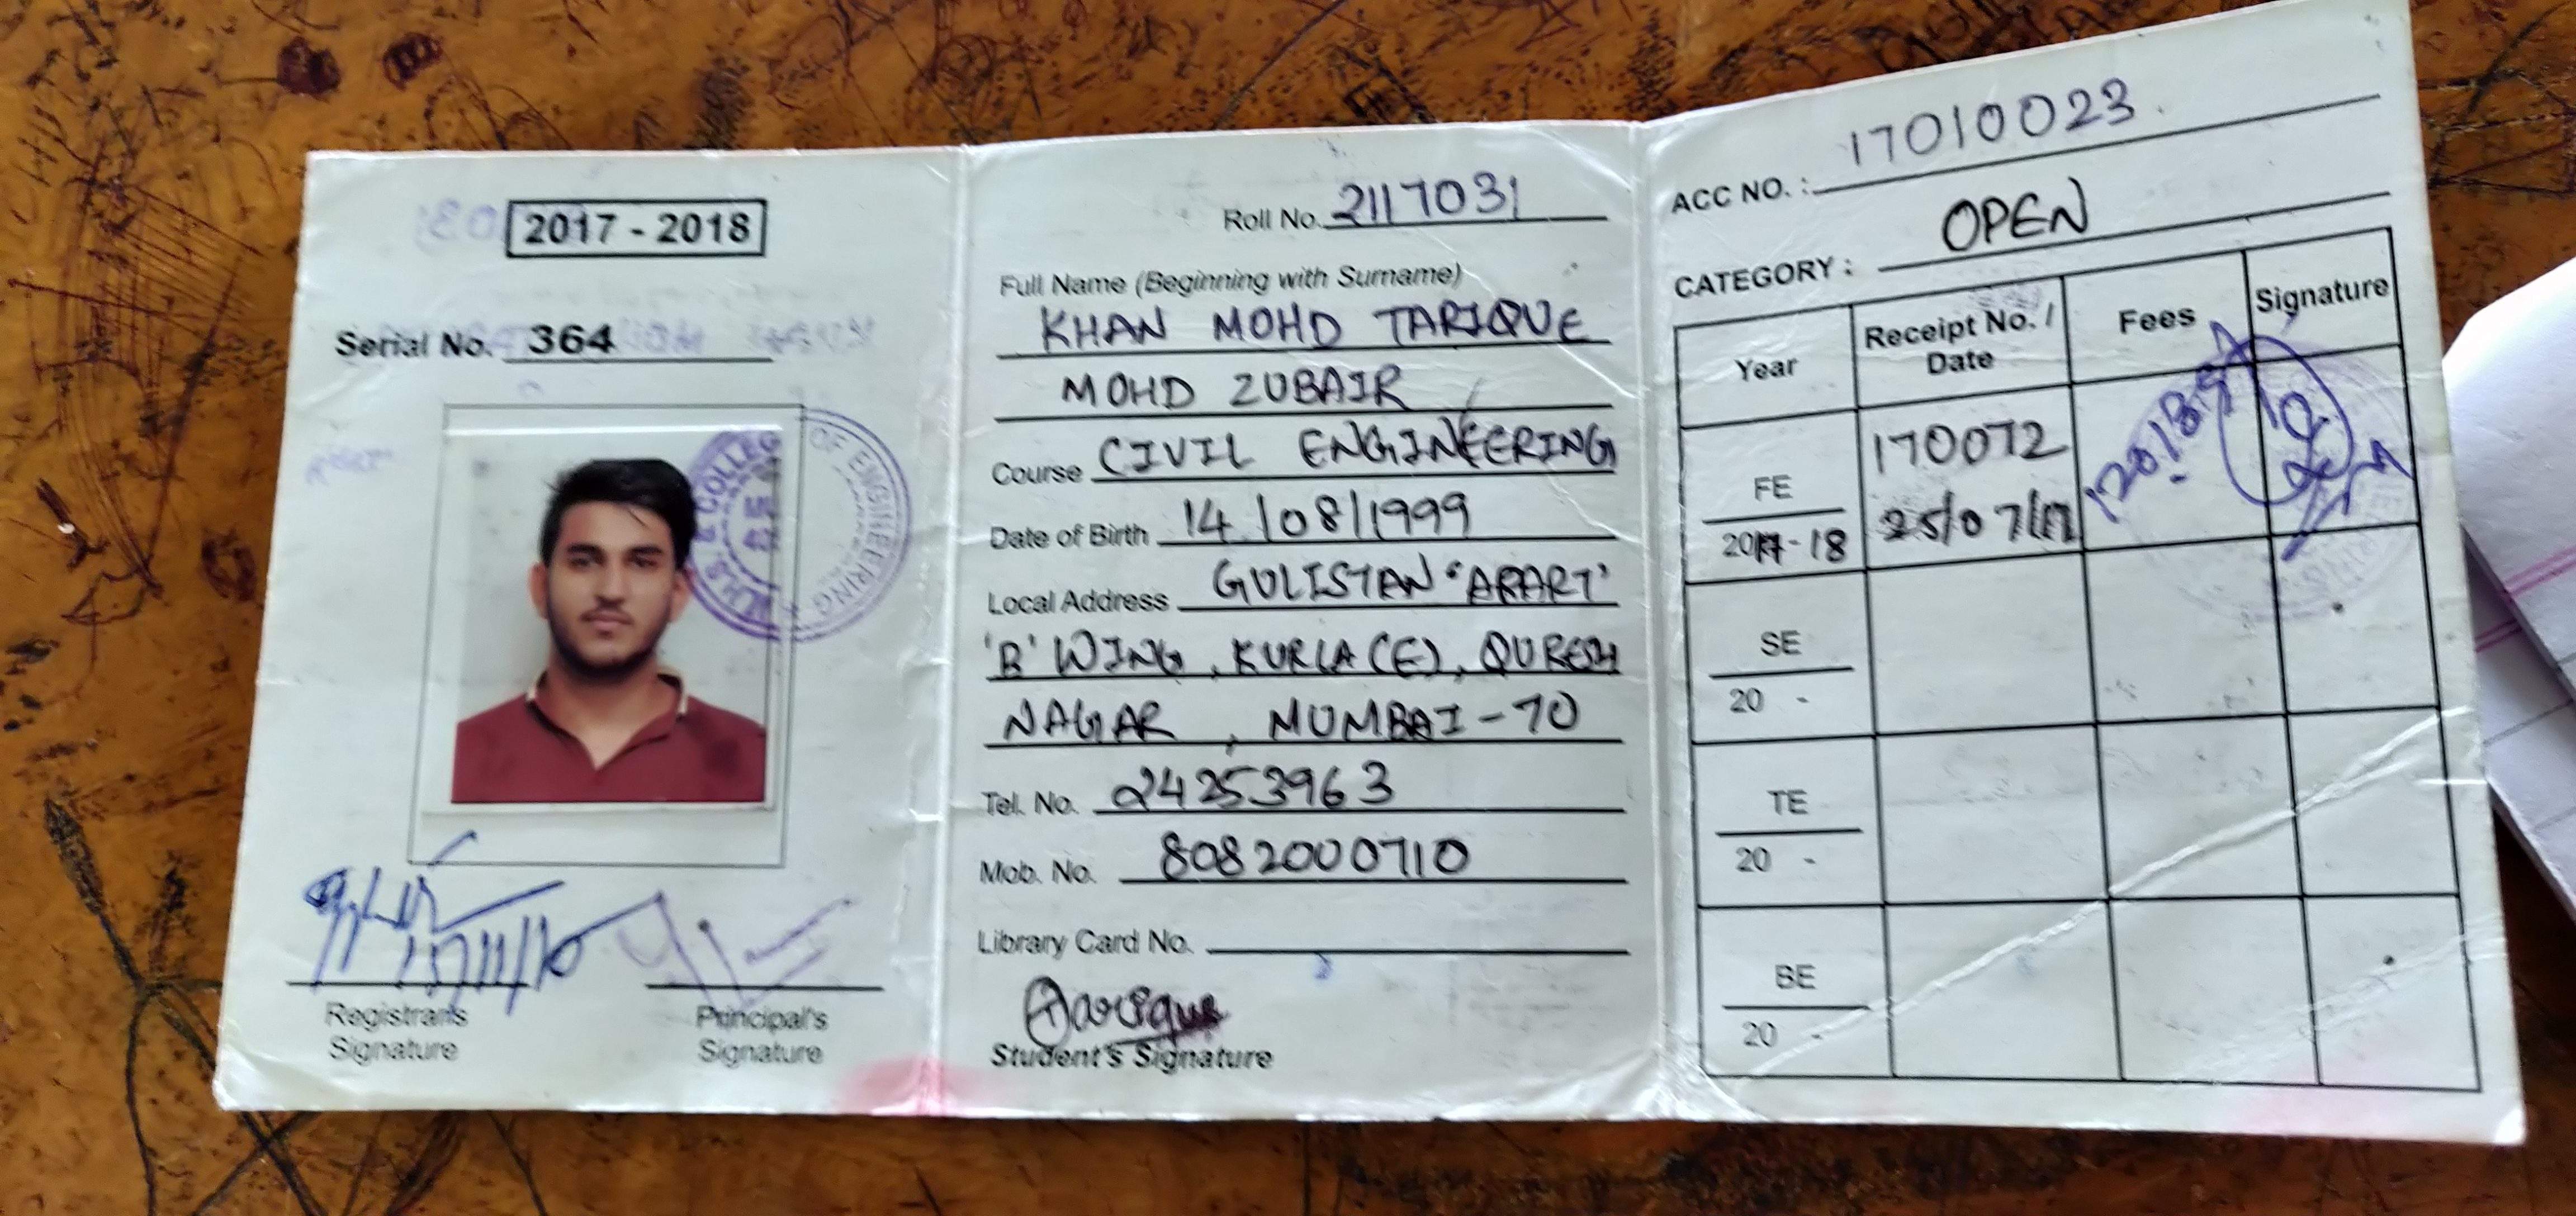 2017 - 2018
Serial No. 364
COLLEGE OF ENGINEERING
Registrar's Signature
Principal's Signature
Roll No. 2117031
Full Name (Beginning with Surname)
KHAN MOHD TARIQUE
MOHD ZUBAIR
Course CIVIL ENGINEERING
Date of Birth 14/08/1999
Local Address GULISTAN 'APART'
'B' WING, KURLA (E), QURESH
NAGAR, MUMBAI-70
Tel. No. 24253963
Mob. No. 8082000710
Library Card No.
Tarique
Student's Signature
ACC NO. : 17010023.
CATEGORY : OPEN
Year Receipt No. / Date Fees Signature
FE 170072
2017-18 25/07/17
SE
20 -
TE
20 -
BE
20 -